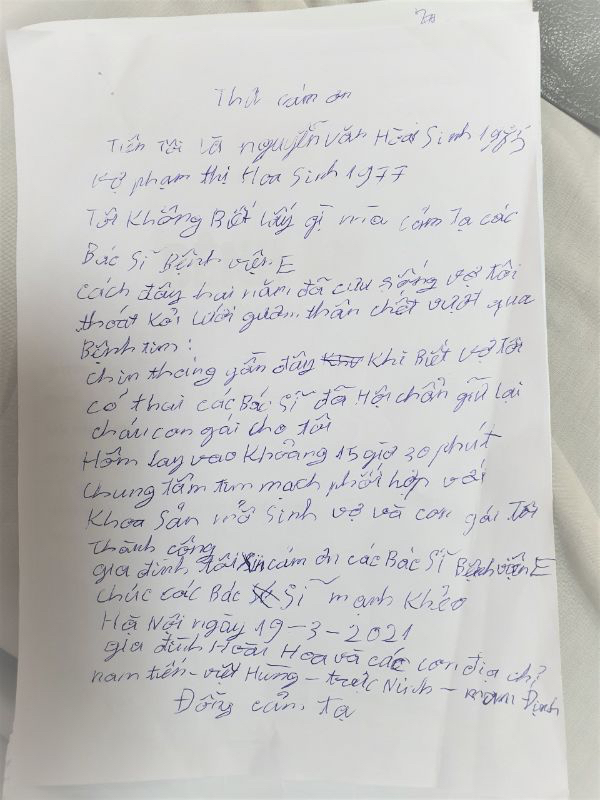 Thử cảm ơn
Tiên Tôi là nguyễn văn Hoài Sinh
vợ phạm thị Hoa Sinh 1977
Tôi Không Biết lấy gì mà cảm tạ các
Bác Sĩ Bệnh viện E
cách đây hai năm đã cứu sống vợ tôi
thoát Kỏi lưỡi gươm thần chết vượt qua
Bệnh tim:
chín tháng gần đây Khi Biết vợ tôi
có thai các Bác Sĩ đã Hội chẩn giữ lại
cháu con gái cho tôi
Hôm lay vào Khoảng 15 giờ 30 phút
Chung tâm tim mạch phối hợp với
Khoa Sản mổ Sinh vợ và con gái Tôi
Thành công
gia đình tôi cảm ơn các Bác Sĩ Bệnh viện E
chúc các Bác Sĩ mạnh Khẻo
Hà Nội ngày 19-3-2021
gia đình Hoài Hoa và các con địa chỉ
nam tiến - việt Hùng - trực Ninh - nam Định
Đồng cảm tạ